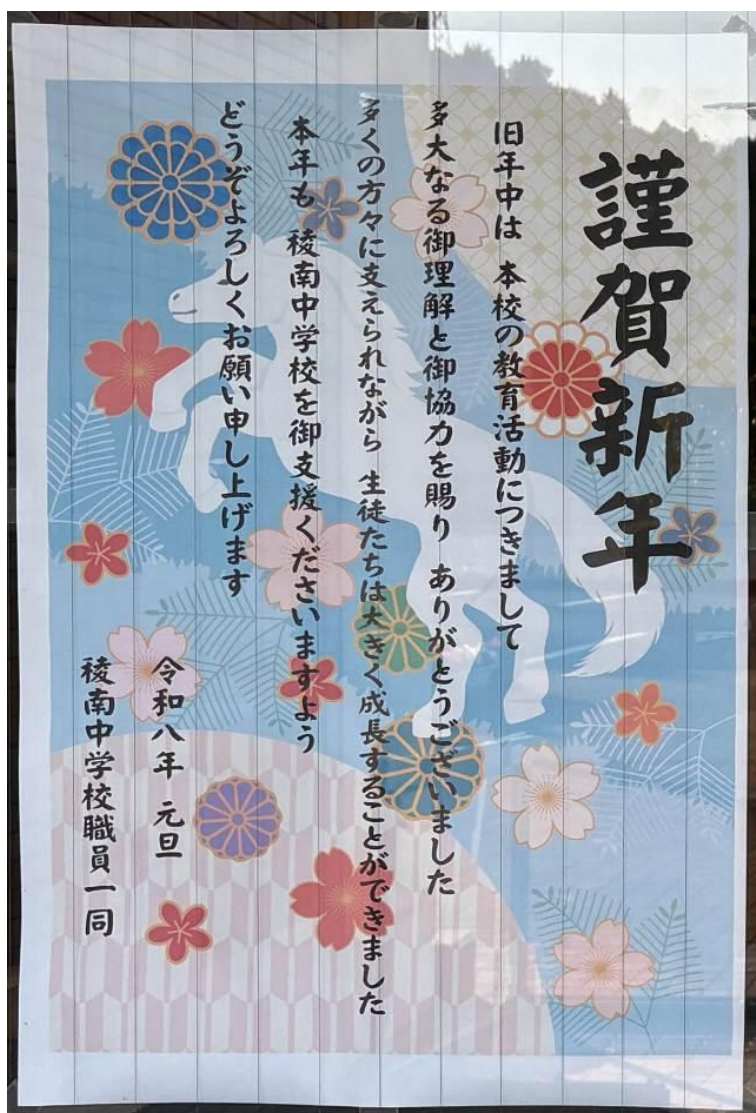 謹賀新年
旧年中は 本校の教育活動につきまして
多大なる御理解と御協力を賜り ありがとうございました
多くの方々に支えられながら 生徒たちは大きく成長することができました
本年も 稜南中学校を御支援くださいますよう
どうぞよろしくお願い申し上げます
令和八年 元旦
稜南中学校職員一同